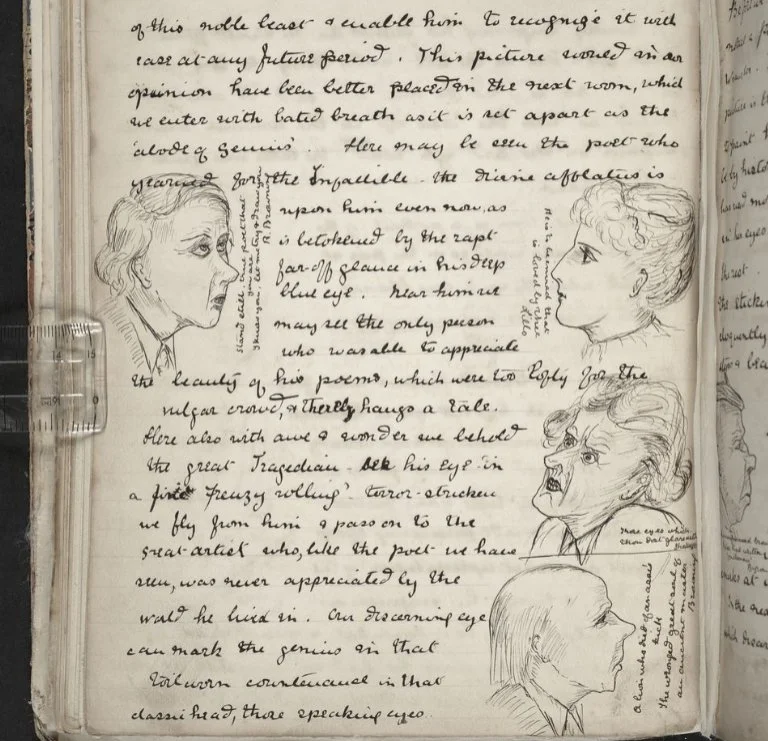 of this noble beast & enable him to recognise it with
ease at any future period. This picture would in our
opinion have been better placed in the next room, which
we enter with bated breath as it is set apart as the
'abode of genius'. Here may be seen the poet who
yearned for the Infallible. the divine afflatus is
upon him even now, as
is betokened by the rapt
far-off glance in his deep
blue eye. Near him we
may see the only person
who was able to appreciate
the beauty of his poems, which were too lofty for the
vulgar crowd, & thereby hangs a tale.
Here also with awe & wonder we behold
the great Tragedian his eye in
a fine frenzy rolling' terror-stricken
we fly from him & pass on to the
great artist who, like the poet we have
seen, was never appreciated by the
world he lived in. Our discerning eye
can mark the genius in that
toil worn countenance in that
classic head, those speaking eyes.
Stand still, true poet that
you are
I know you. let me try & draw you
R. Browning
that
is loved by
Those eyes which
thou dost glare
A lion who died of an ass's
kick
The wronged great soul of
an ancient master
Browning